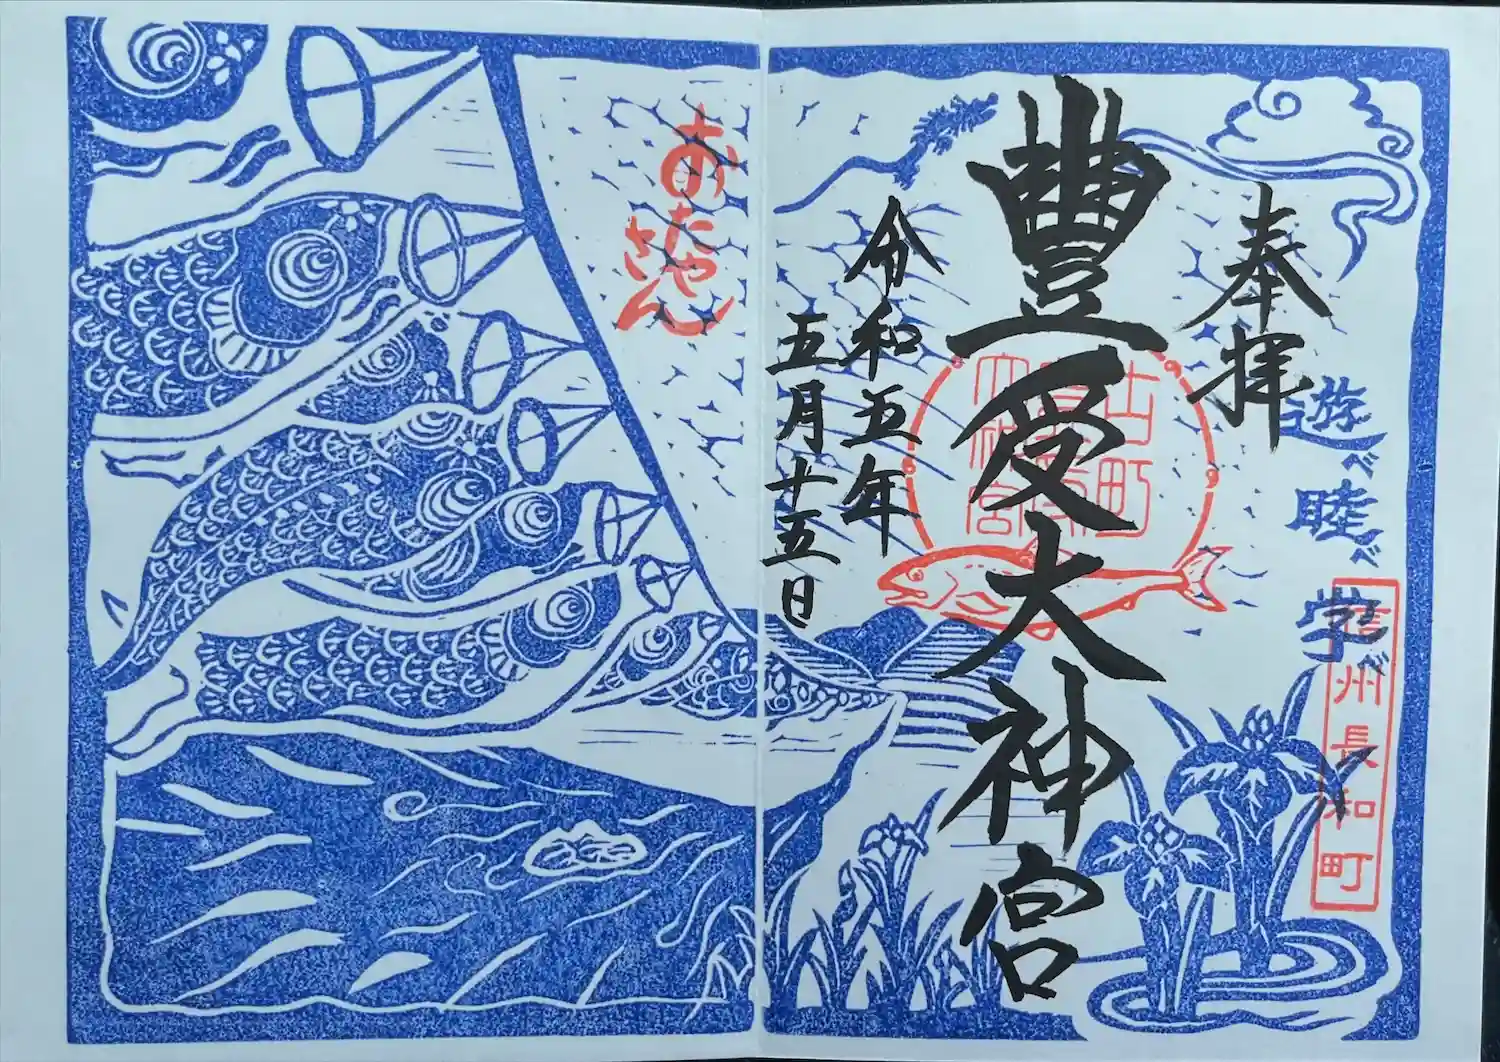 奉拝
遊べ睦べ学べ
信州長和町
豊受大神宮
令和五年
五月十五日
おたやさん